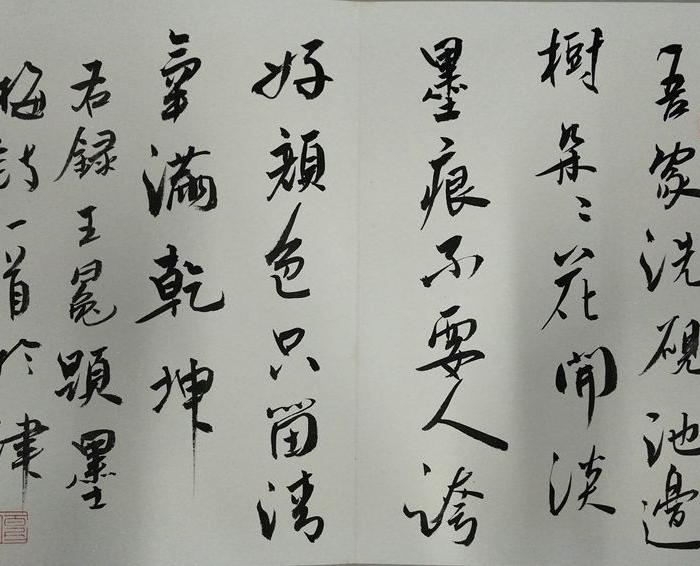 吾家洗硯池邊
樹朵々花開淡
墨痕不要人誇
好顔色只留清
氣滿乾坤
右録王冕題墨
梅詩一首於津